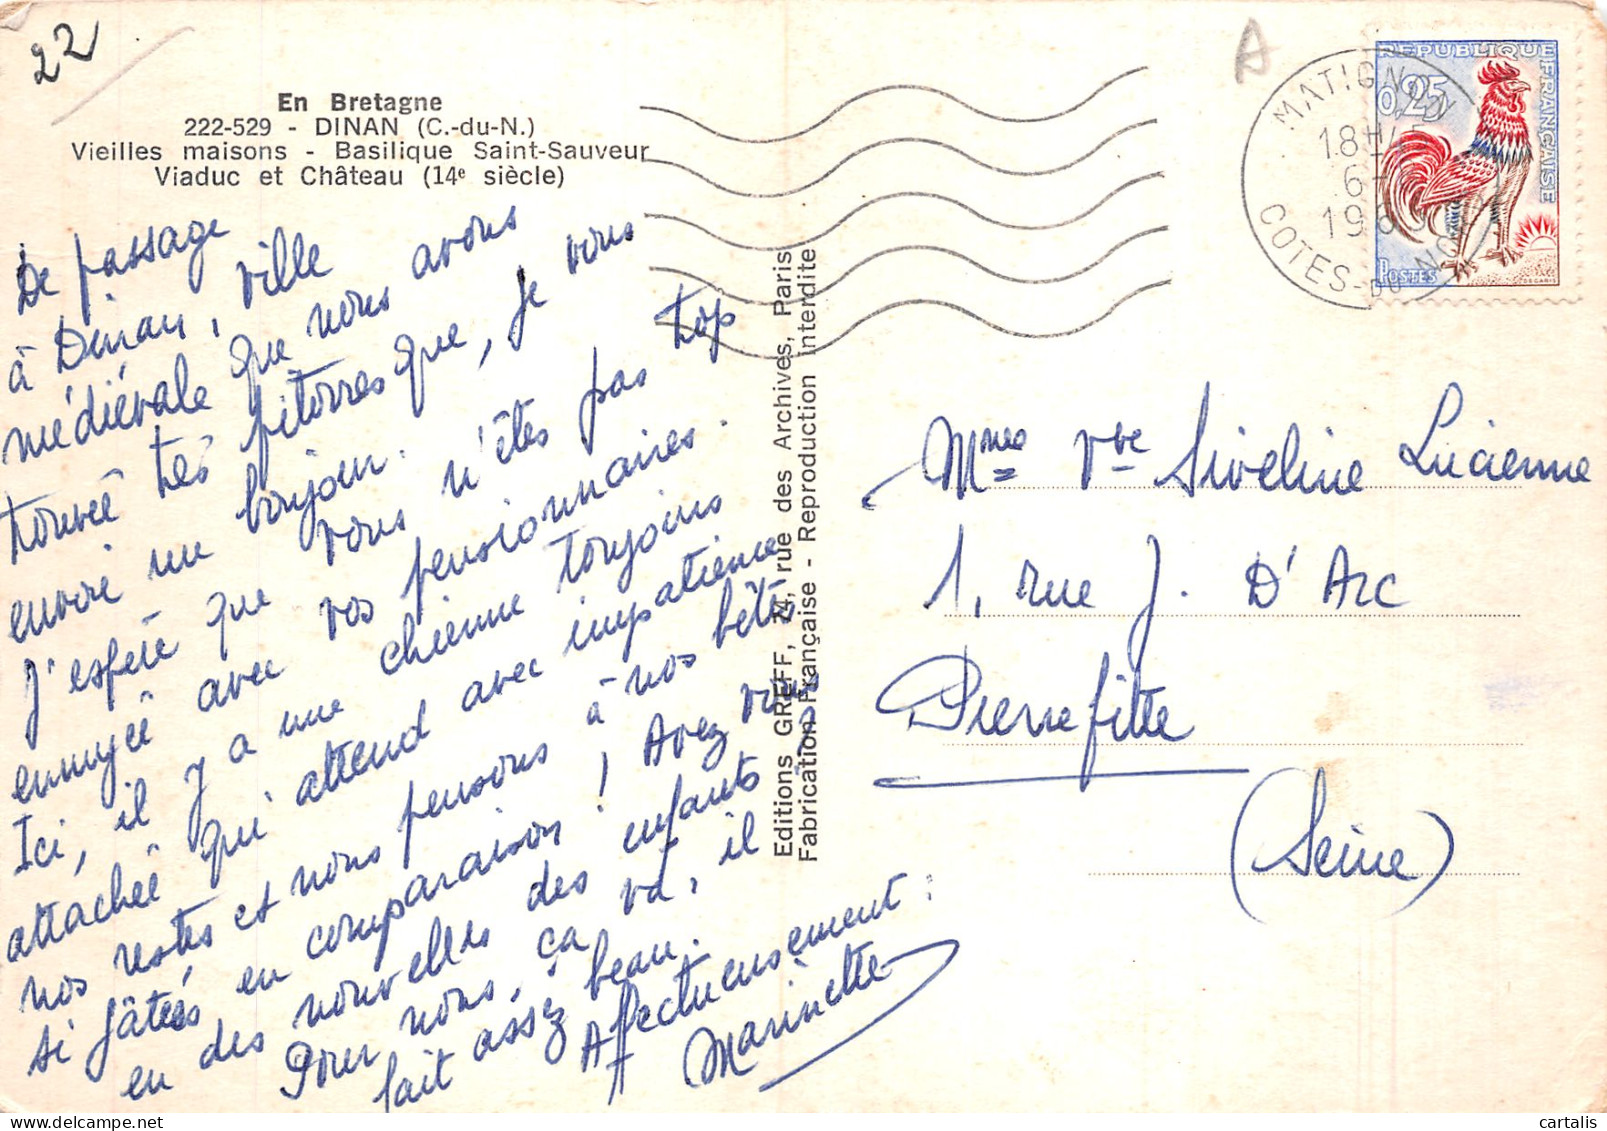 22
A
En Bretagne
222-529 - DINAN (C.-du-N.)
Vieilles maisons - Basilique Saint-Sauveur
Viaduc et Château (14e siècle)
De passage
à Dinan, ville
médiévale que nous avons
trouvée très pittoresque, je vous
envoie un bonjour.
J'espère que vous n'êtes pas trop
ennuyée avec vos pensionnaires.
Ici, il y a une chienne toujours
attachée qui attend avec impatience
nos restes et nous pensons à nos bêtes
si gâtées en comparaison ! Avez vous
eu des nouvelles des enfants
Pour nous, ça va, il
fait assez beau.
Affectueusement :
Marinette
Editions GREFF, 74, rue des Archives, Paris
Fabrication Française - Reproduction interdite
MATIGNON
18H
6-
19
COTES-DU-NORD
REPUBLIQUE FRANÇAISE
0,25
POSTES
DECARIS
Mmes Vve Siveline Lucienne
1, rue J. D'Arc
Pierrefitte
(Seine)
cartalis - delcampe.net